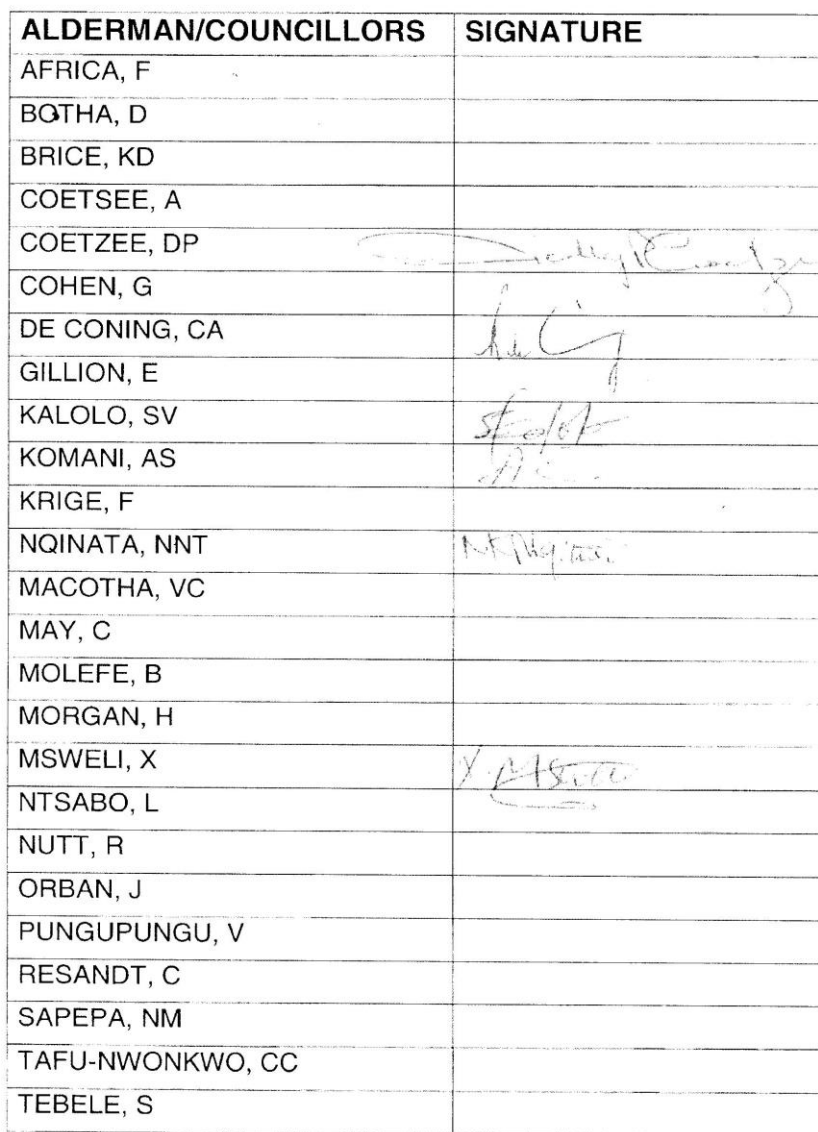 ALDERMAN/COUNCILLORS SIGNATURE
AFRICA, F
BOTHA, D
BRICE, KD
COETSEE, A
COETZEE, DP
COHEN, G
DE CONING, CA
GILLION, E
KALOLO, SV
KOMANI, AS
KRIGE, F
NQINATA, NNT
MACOTHA, VC
MAY, C
MOLEFE, B
MORGAN, H
MSWELI, X X.
NTSABO, L
NUTT, R
ORBAN, J
PUNGUPUNGU, V
RESANDT, C
SAPEPA, NM
TAFU-NWONKWO, CC
TEBELE, S